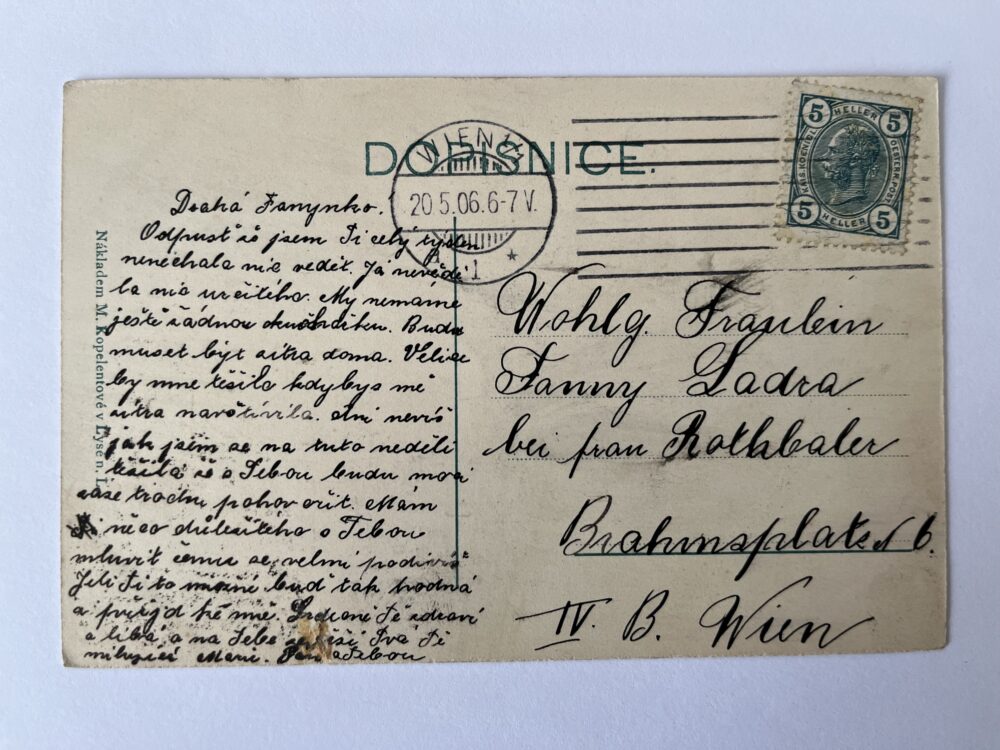 DOPISNICE.
WIEN 1/1
20.5.06.6-7 V.
1
5 HELLER 5
KAIS. KOENIGL.
OESTERR. POST
5 HELLER 5
Nákladem M. Kopelentové v Lysé n. L.
Drahá Fanynko.
Odpusť že jsem Ti celý týden
nenechala nic vedět. Já nevědě
la nic určitého. My nemáme
ještě žádnou kuchařku. Budu
muset být zítra doma. Velice
by mne těšilo kdybys mě
zitra navštívila. Ani nevíš
jak jsem se na tuto neděli
těšila že s Tebou budu moci
zase trochu pohovořit. Mám
něco důležitého s Tebou
mluvit čemu se velmi podivíš
Jeli Ti to možné buď tak hodná
a přijď ke mě. Srdečně Tě zdraví
a líbá a na Tebe se těší Tvá Tě
milující Marie. s Tebou
Wohlg. Fraulein
Fanny Ladra
bei frau Rothbaler
Brahmsplatz N 6.
IV. B. Wien